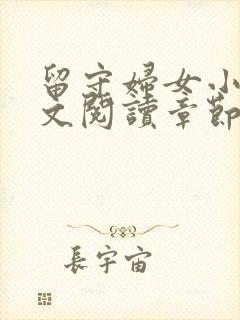 留守婦女小
文閱讀章節
長宇宙